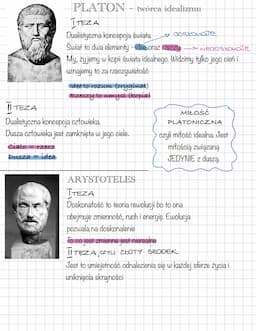 PLATON - twórca idealizmu
I TEZA
Dualistyczna koncepcja świata → DOSKONAŁE
Świat to dwa elementy - idee oraz rzeczy → NIEDOSKONAŁE
My, żyjemy w kopii świata idealnego. Widzimy tylko jego cień i
uznajemy to za rzeczywistość
Idee to rozum (oryginał)
Rzeczy to umysł (kopia)
II TEZA
Dualistyczna koncepcja człowieka
Dusza człowieka jest zamknięta w jego ciele.
Ciało = rzecz
Dusza = idea
MIŁOŚĆ
PLATONICZNA
czyli miłość idealna. Jest
miłością związaną
JEDYNIE z duszą.
ARYSTOTELES
I TEZA
Doskonałość to teoria rewolucji bo to ona
obejmuje zmienność, ruch i energię. Ewolucja
pozwala na doskonalenie
To co jest zmienne jest
II TEZA, CZYLI ZŁOTY ŚRODEK
Jest to umiejętność odnalezienia się w każdej sferze życia i
uniknięcia skrajności